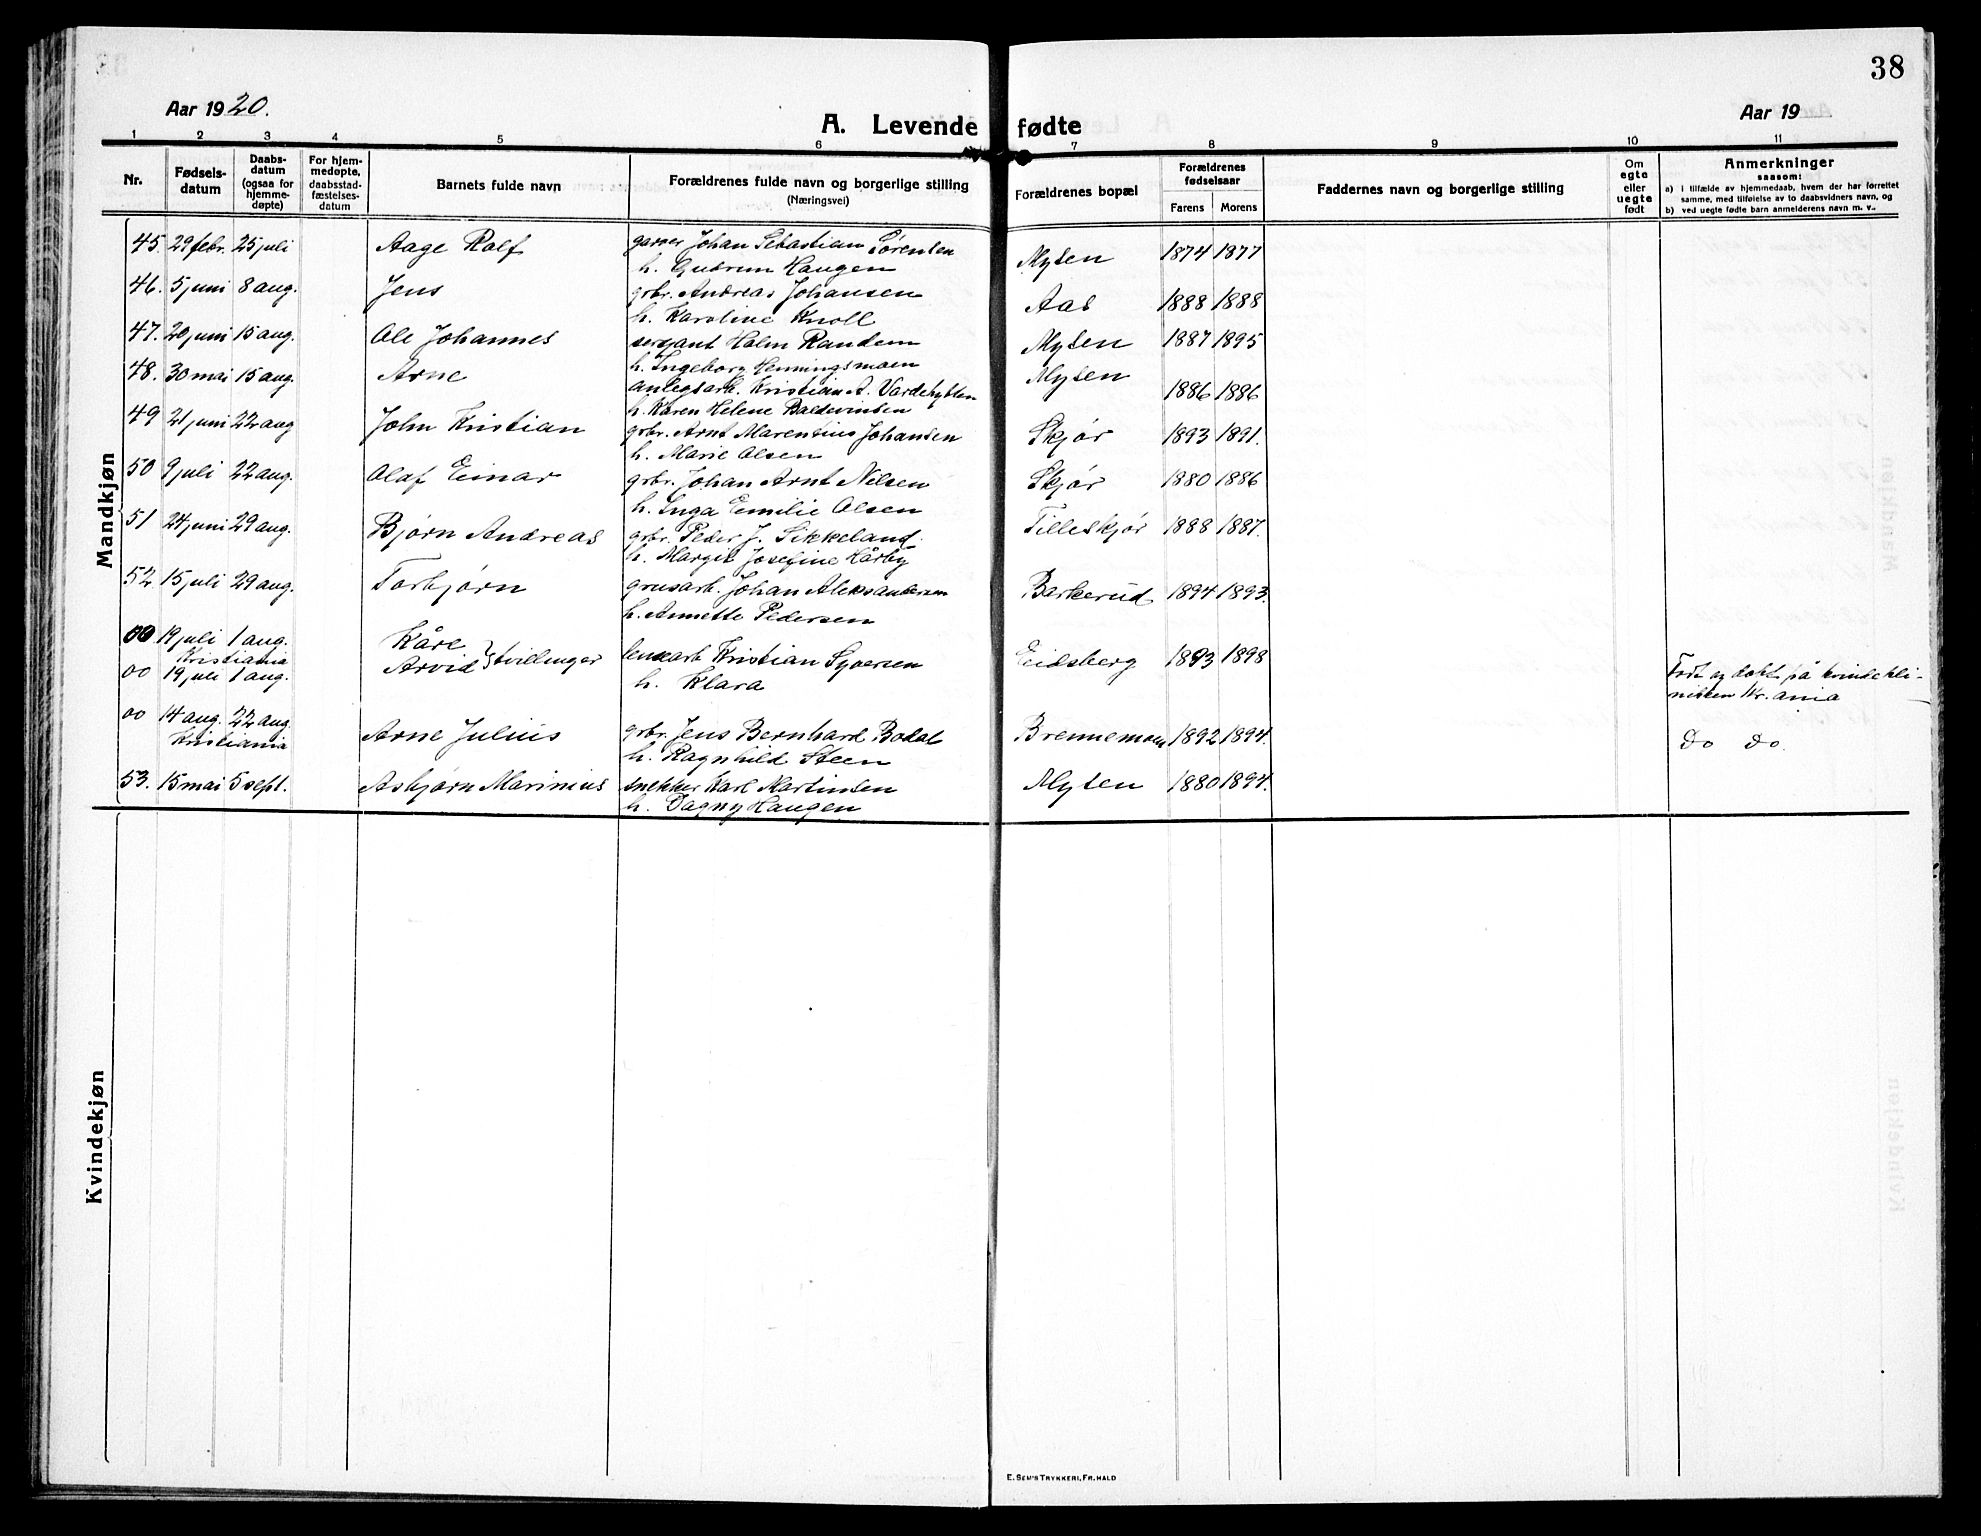 38
Aar 1920.
A. Levende fødte
Aar 19
1 2 3 4 5 6 7 8 9 10 11
Nr.
Fødsels-
datum
Daabs-
datum
(ogsaa for
hjemme-
døpte)
For hjem-
medøpte,
daabsstad-
fæstelses-
datum
Barnets fulde navn
Forældrenes fulde navn og borgerlige stilling
(Næringsvei)
Forældrenes bopæl
Forældrenes
fødselsaar
Farens Morens
Faddernes navn og borgerlige stilling
Om
egte
eller
uegte
født
Anmerkninger
saasom:
a) i tilfælde av hjemmedaab, hvem der har forrettet
samme, med tilføielse av to daabsvidners navn, og
b) ved uegte fødte barn anmelderens navn m. v..
Mandkjøn
45. 29 febr. 25 juli Aage Ralf garver Johan Sebastian Sørensen Mysen 1874 1877
h. Gudrun Haugen
46. 5 juni 8 aug. Jens grbr. Andreas Johansen Aas 1888 1888
h. Karoline Knoll
47. 20 juni 15 aug. Ole Johannes sersjant Halm Randem Mysen 1887 1895
h. Ingeborg Henningsmoen
48. 30 mai 15 aug. Arne anlegsarb. Kristian A. Vardehytten Mysen 1886 1886
h. Karen Helene Baldevinsen
49 21 juni 22 aug John Kristian grbr. Arnt Marentius Johansen Skjør 1893 1891.
h. Marie Olsen
50 9 juli 22 aug. Olaf Einar grbr. Johan Arnt Nilsen Skjør 1880 1886
h. Inga Emilie Olsen
51 24 juni 29 aug. Bjørn Andreas grbr. Peder J. Sikkeland Tilleskjør 1888 1887.
h. Margit Josefine Kårby
52 15 juli 29 aug. Torbjørn grusarb. Johan Aleksandersen Barkerud 1894 1893.
h. Annette Pedersen
00 19 juli 1 aug. Kåre
Kristiania
00 19 juli 1 aug. Arvid } tvillinger Kristian Syversen Eidsberg 1893 1898
h. Klara
Født og døbt på kvindekli-
nikken Kr.ania
00 14 aug. 22 aug. Arne Julius grbr. Jens Bernhard Bodal Brennemoen 1892 1894. Do Do.
Kristiania h. Ragnhild Steen
53. 15 mai 5 sept. Asbjørn Marinius snekker Karl Martinsen Mysen 1880 1894.
h. Dagny Haugen
Kvindekjøn
E. Sem's Trykkeri, Fr.hald